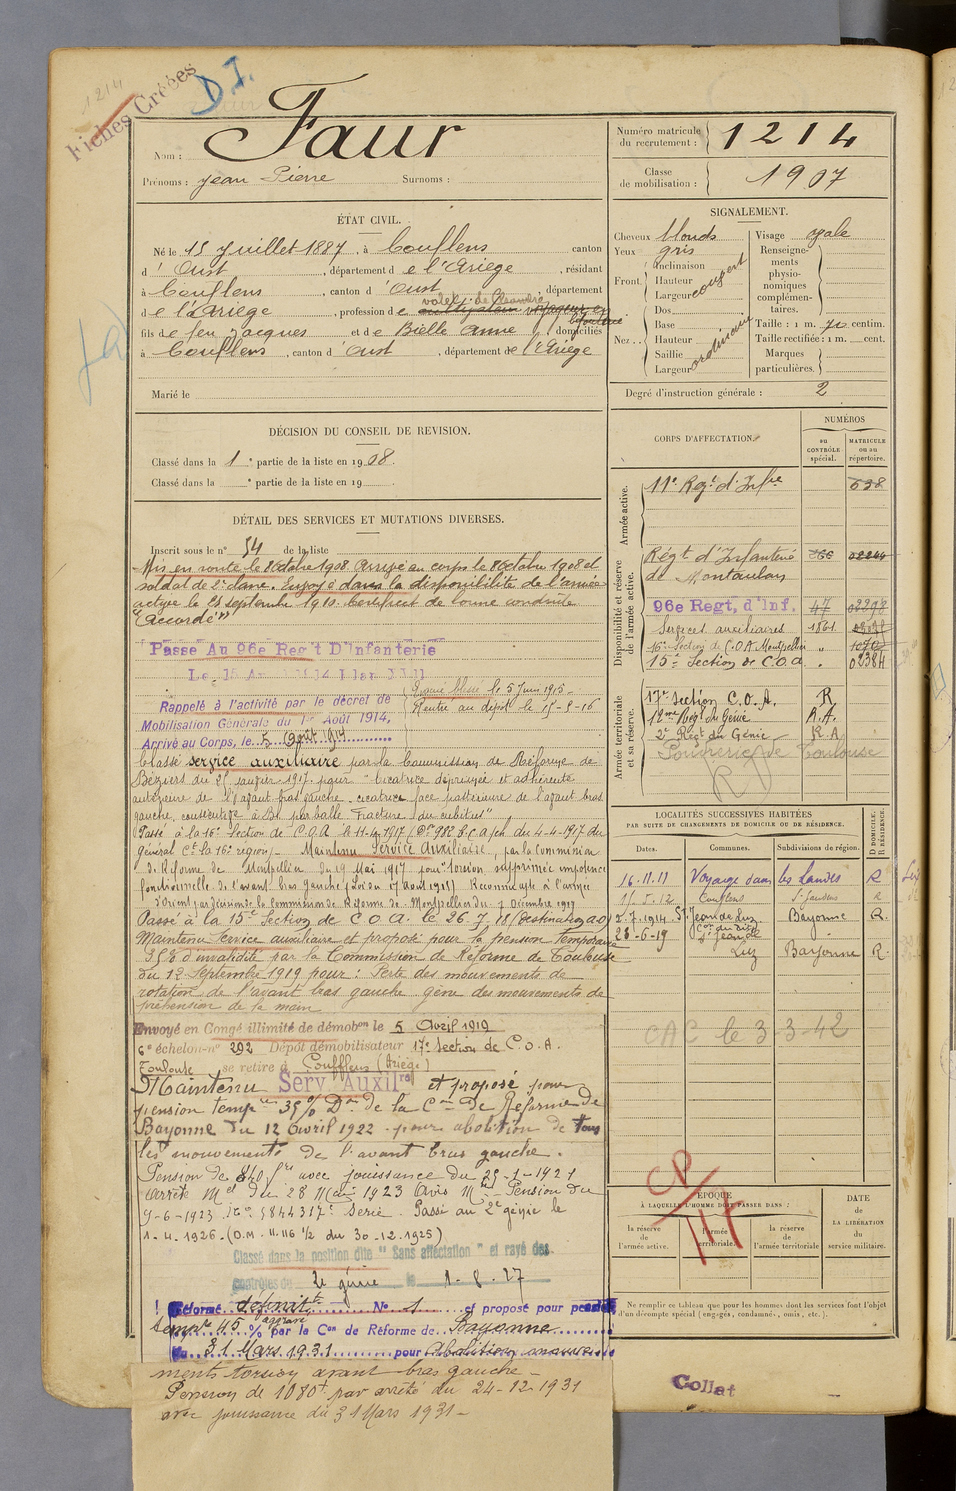 1214
Fiches Créées
D.I.
Nom : Faur
Prénoms : Jean Pierre Surnoms :
ÉTAT CIVIL.
Né le 15 Juillet 1887, à Couflens canton
d'Oust, département de l'Ariège, résidant
à Couflens, canton d'Oust, département
de l'Ariège, profession de valet de chambre
fils de feu Jacques et de Bielle Anne domiciliés
à Couflens, canton d'Oust, département de l'Ariège
Marié le
DÉCISION DU CONSEIL DE REVISION.
Classé dans la 1e partie de la liste en 1908.
Classé dans la e partie de la liste en 19
DÉTAIL DES SERVICES ET MUTATIONS DIVERSES.
Inscrit sous le n° 54 de la liste
Mis en route le 8 octobre 1908. Arrivé au corps le 8 octobre 1908 et
soldat de 2e classe. Envoyé dans la disponibilité de l'armée
active le 25 septembre 1910. Certificat de bonne conduite
"Accordé"
Passe Au 96e Reg't D'Infanterie
Le 15 1914 Plan
Rappelé à l'activité par le décret de
Mobilisation Générale du 1er Août 1914,
Arrivé au Corps, le 5 Août 1914
blessé le 5 Juin 1915
Rentré au dépôt le 15-8-16
Classé service auxiliaire par la Commission de Réforme de
Béziers du 25 janvier 1917 pour "cicatrice déprimée et adhérente
antérieure de l'avant bras gauche, cicatrice face postérieure de l'avant bras
gauche, consécutive à Bl. par balle. Fracture du cubitus"
Passé à la 16e Section de C.O.A. le 11-4-1917 (On 982 du 4-4-1917 du
Général Ct la 16e région) Maintenu Service Auxiliaire, par la Commission
de Réforme de Montpellier du 19 Mai 1917 pour "torsion supprimée impotence
fonctionnelle de l'avant bras gauche (Loi du 17 août 1915) Reconnu apte à l'armée
d'Orient par décision de la Commission de Réforme de Montpellier du 7 Décembre 1917
Passé à la 15e Section de C O A. le 26.7.18
Maintenu service auxiliaire et proposé pour la pension temporaire
35% d'invalidité par la Commission de Réforme de Toulouse
du 12 Septembre 1919 pour : Perte des mouvements de
rotation de l'avant bras gauche gêne des mouvements de
préhension de la main
Envoyé en Congé illimité de démobon le 5 Avril 1919
6e échelon-n° 292 Dépôt démobilisateur 17e Section de C.O.A.
Toulouse se retire à Couflens (Ariège)
Maintenu Serv Auxilre et proposé pour
pension tempre 35% Don de la Con de Réforme de
Bayonne du 12 Avril 1922 pour abolition de tous
les mouvements de l'avant bras gauche.
Pension de 840 frs avec jouissance du 25-1-1921
Arrêté Mel du 28 Mai 1923 Avis Mel Pension du
9-6-1923 N° 5844317e Série. Passé au 2e génie le
1-4-1926. (D.M. 11.116 1/2 du 30-12-1925)
Classé dans la position dite "Sans affectation" et rayé des
contrôles du 2e génie le 1-8-27
Réformé définitt N° 1 et proposé pour pension
tempre 45% aggravé par la Con de Réforme de Bayonne
du 31 Mars 1931 pour abolition mouve-
ments torsion avant bras gauche
Pension de 1080f par arrêté du 24-12-1931
avec jouissance du 31 Mars 1931
Numéro matricule du recrutement : 1214
Classe de mobilisation : 1907
SIGNALEMENT.
Cheveux blonds
Yeux gris
Front. Inclinaison
Hauteur
Largeur
Nez. Dos
Base
Hauteur
Saillie
Largeur
ordinaire
Visage ovale
Renseignements physionomiques complémentaires.
Taille : 1 m. 70 centim.
Taille rectifiée : 1 m. cent.
Marques particulières.
Degré d'instruction générale : 2
CORPS D'AFFECTATION.
NUMÉROS
au CONTRÔLE spécial.
MATRICULE ou au répertoire.
Armée active.
11e Regt d'Infie 698
Disponibilité et réserve de l'armée active.
Régt d'Infanterie 02244
de Montauban
96e Regt, d'Inf. 47 02298
Services auxiliaires 1861
16e Section de C.O.A Montpellier " 1090
15e Section de C.O.A. " 02384
Armée territoriale et sa réserve.
17e Section C.O.A. R
12me Régt du Génie R.A.
2e Régt du Génie R.A
Poudrerie de Toulouse
R
LOCALITÉS SUCCESSIVES HABITÉES
PAR SUITE DE CHANGEMENTS DE DOMICILE OU DE RÉSIDENCE.
Dates. Communes. Subdivisions de région. D DOMICILE. R RÉSIDENCE.
16.11.11 Voyage dans les Landes R
1.5.12 Couflens St Gaudens R
2-7.1914 St Jean de Luz Bayonne R.
28-6-19 St Jean de Luz Bayonne R.
CAC le 3-3-42
CP
ÉPOQUE
À LAQUELLE L'HOMME DOIT PASSER DANS :
la réserve de l'armée active.
l'armée territoriale.
la réserve de l'armée territoriale
DATE DE LA LIBÉRATION du service militaire.
Ne remplir ce tableau que pour les hommes dont les services font l'objet
d'un décompte spécial (engagés, condamnés, omis, etc.).
Collat